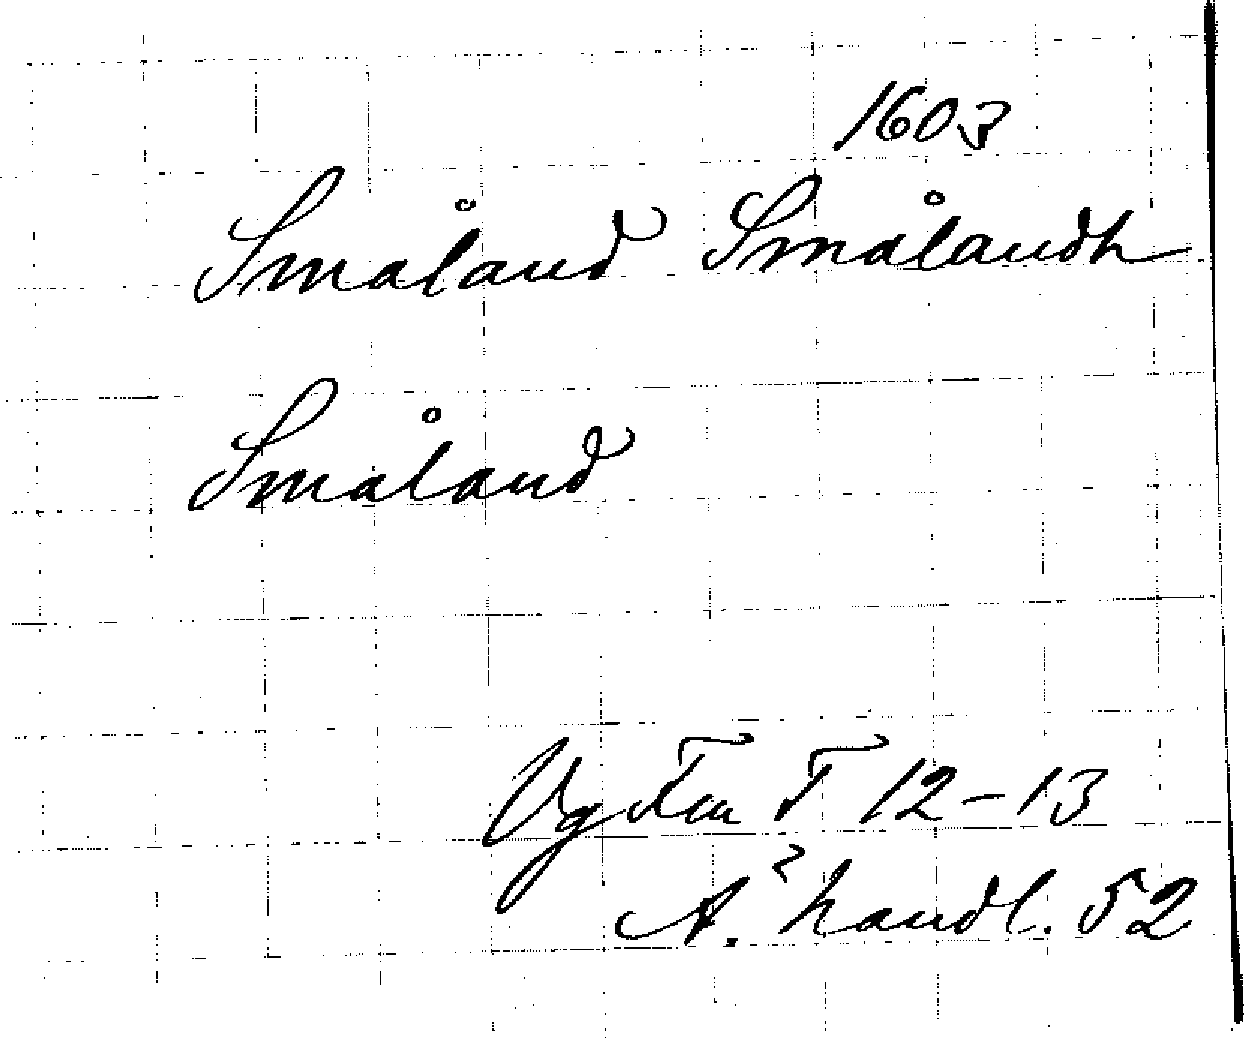 1603
Småland Smålandh
Småland
Vg Fem F 12-13
A. handl. 52